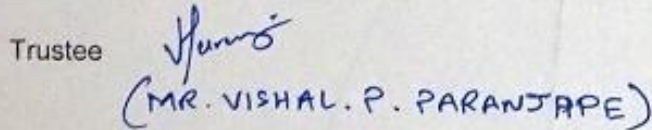 Trustee
(MR. VISHAL. P. PARANJAPE)